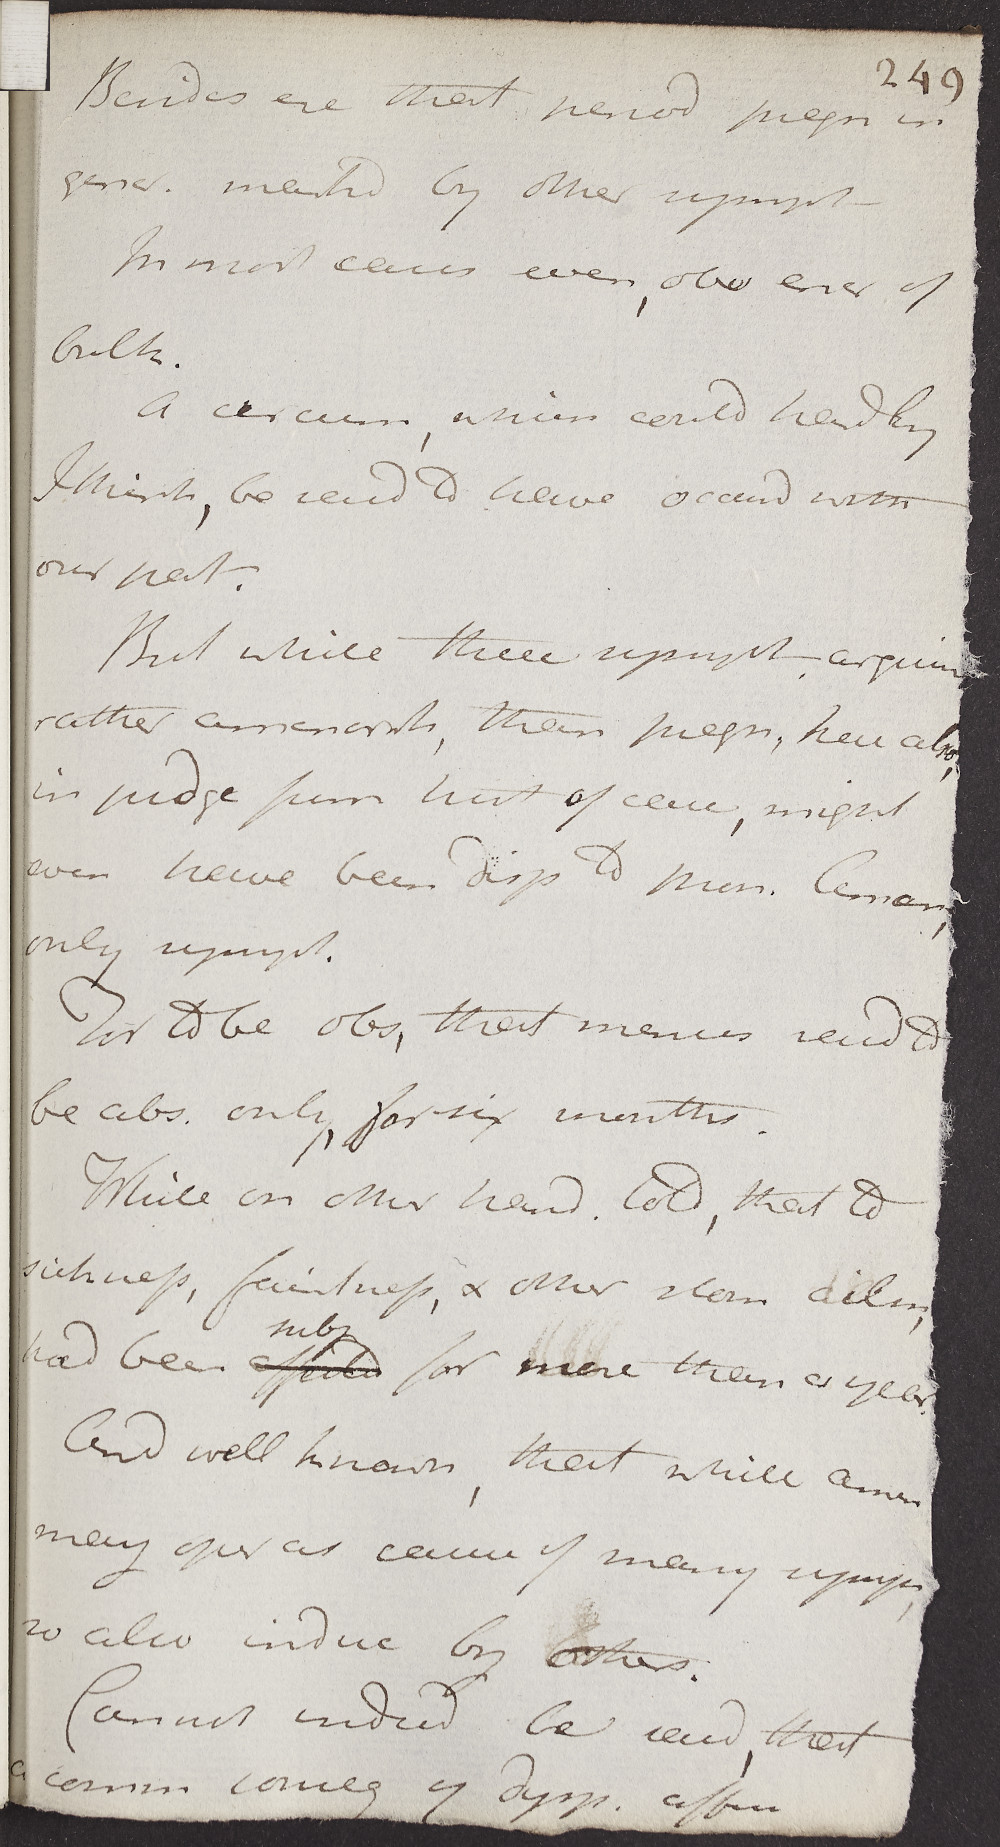 249
Besides ere that period pregn in
gener. marked by other sympt
In most cases even, obs encr of
bulk.
A circum, which could hardly
I think, be said to have occurd with
our pat.
But while these sympt. arguing
rather amenorrh, than pregn, here also,
in judge from hist of case, might
even have been disp to pron. Amen,
only sympt.
For to be obs, that menses said to
be abs. only, for six months.
While on other hand. told, that to
sickness, faintness, & other stom ailm,
had been subj for more than a year.
And well known, that while amen
may oper as cause of many symps,
so also induc by others.
Cannot indeed be said, that
a comm conseq of dysp. affec